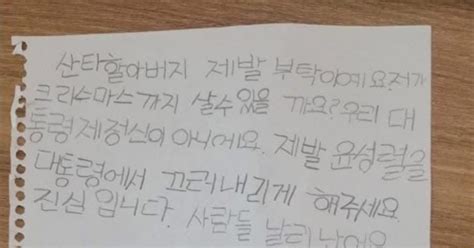 산타할아버지 제발 부탁이에요. 저가
크리스마스까지 살수있을 까요? 우리 대
통령 제정신이 아니에요. 제발 윤성렬을
대통령에서 끄러내리게 해주세요.
진심 입니다. 사람들 난리 났어요